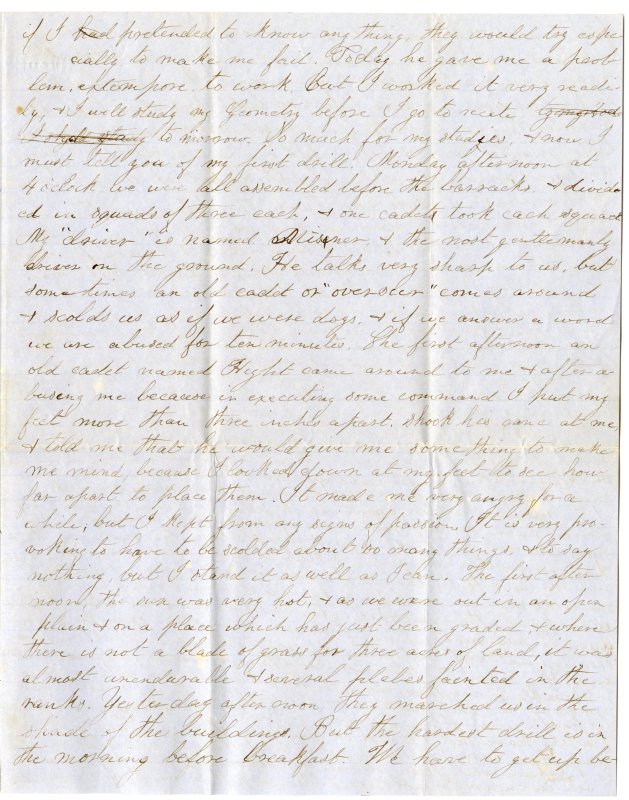 if I had pretended to know any thing, they would try espe
cially to make me fail. Today he gave me a prob
lem, extempore, to work, but I worked it very readi-
ly, & I will study my Geometry before I go to recite
to morrow. So much for my studies, & now I
must tell you of my first drill. Monday afternoon at
4 oclock we were all assembled before the barracks, & divid-
ed in squads of three each, & one cadets took each squad
My "driver" is named & the most gentlemanly
driver on the ground. He talks very sharp to us, but
sometimes an old cadet or "overseer" comes around
& scolds us as if we were dogs, & if we answer a word
we are abused for ten minutes. The first afternoon an
old cadet named Hight came around to me & after a-
busing me because in executing some command I put my
feet more than three inches apart, shook his cane at me,
& told me that he would give me something to make
me mind, because I looked down at my feet to see how
far apart to place them. It made me very angry for a
while, but I kept from any signs of passion. It is very pro-
voking to have to be scolded about so many things, & to say
nothing, but I stand it as well as I can. The first after
noon, the sun was very hot, & as we were out in an open
plain & on a place which has just been graded, & where
there is not a blade of grass for three acres of land, it was
almost unendurable & several plebes fainted in the
ranks. Yesterday afternoon they marched us in the
shade of the buildings. But the hardest drill is in
the morning before breakfast. We have to get up be-